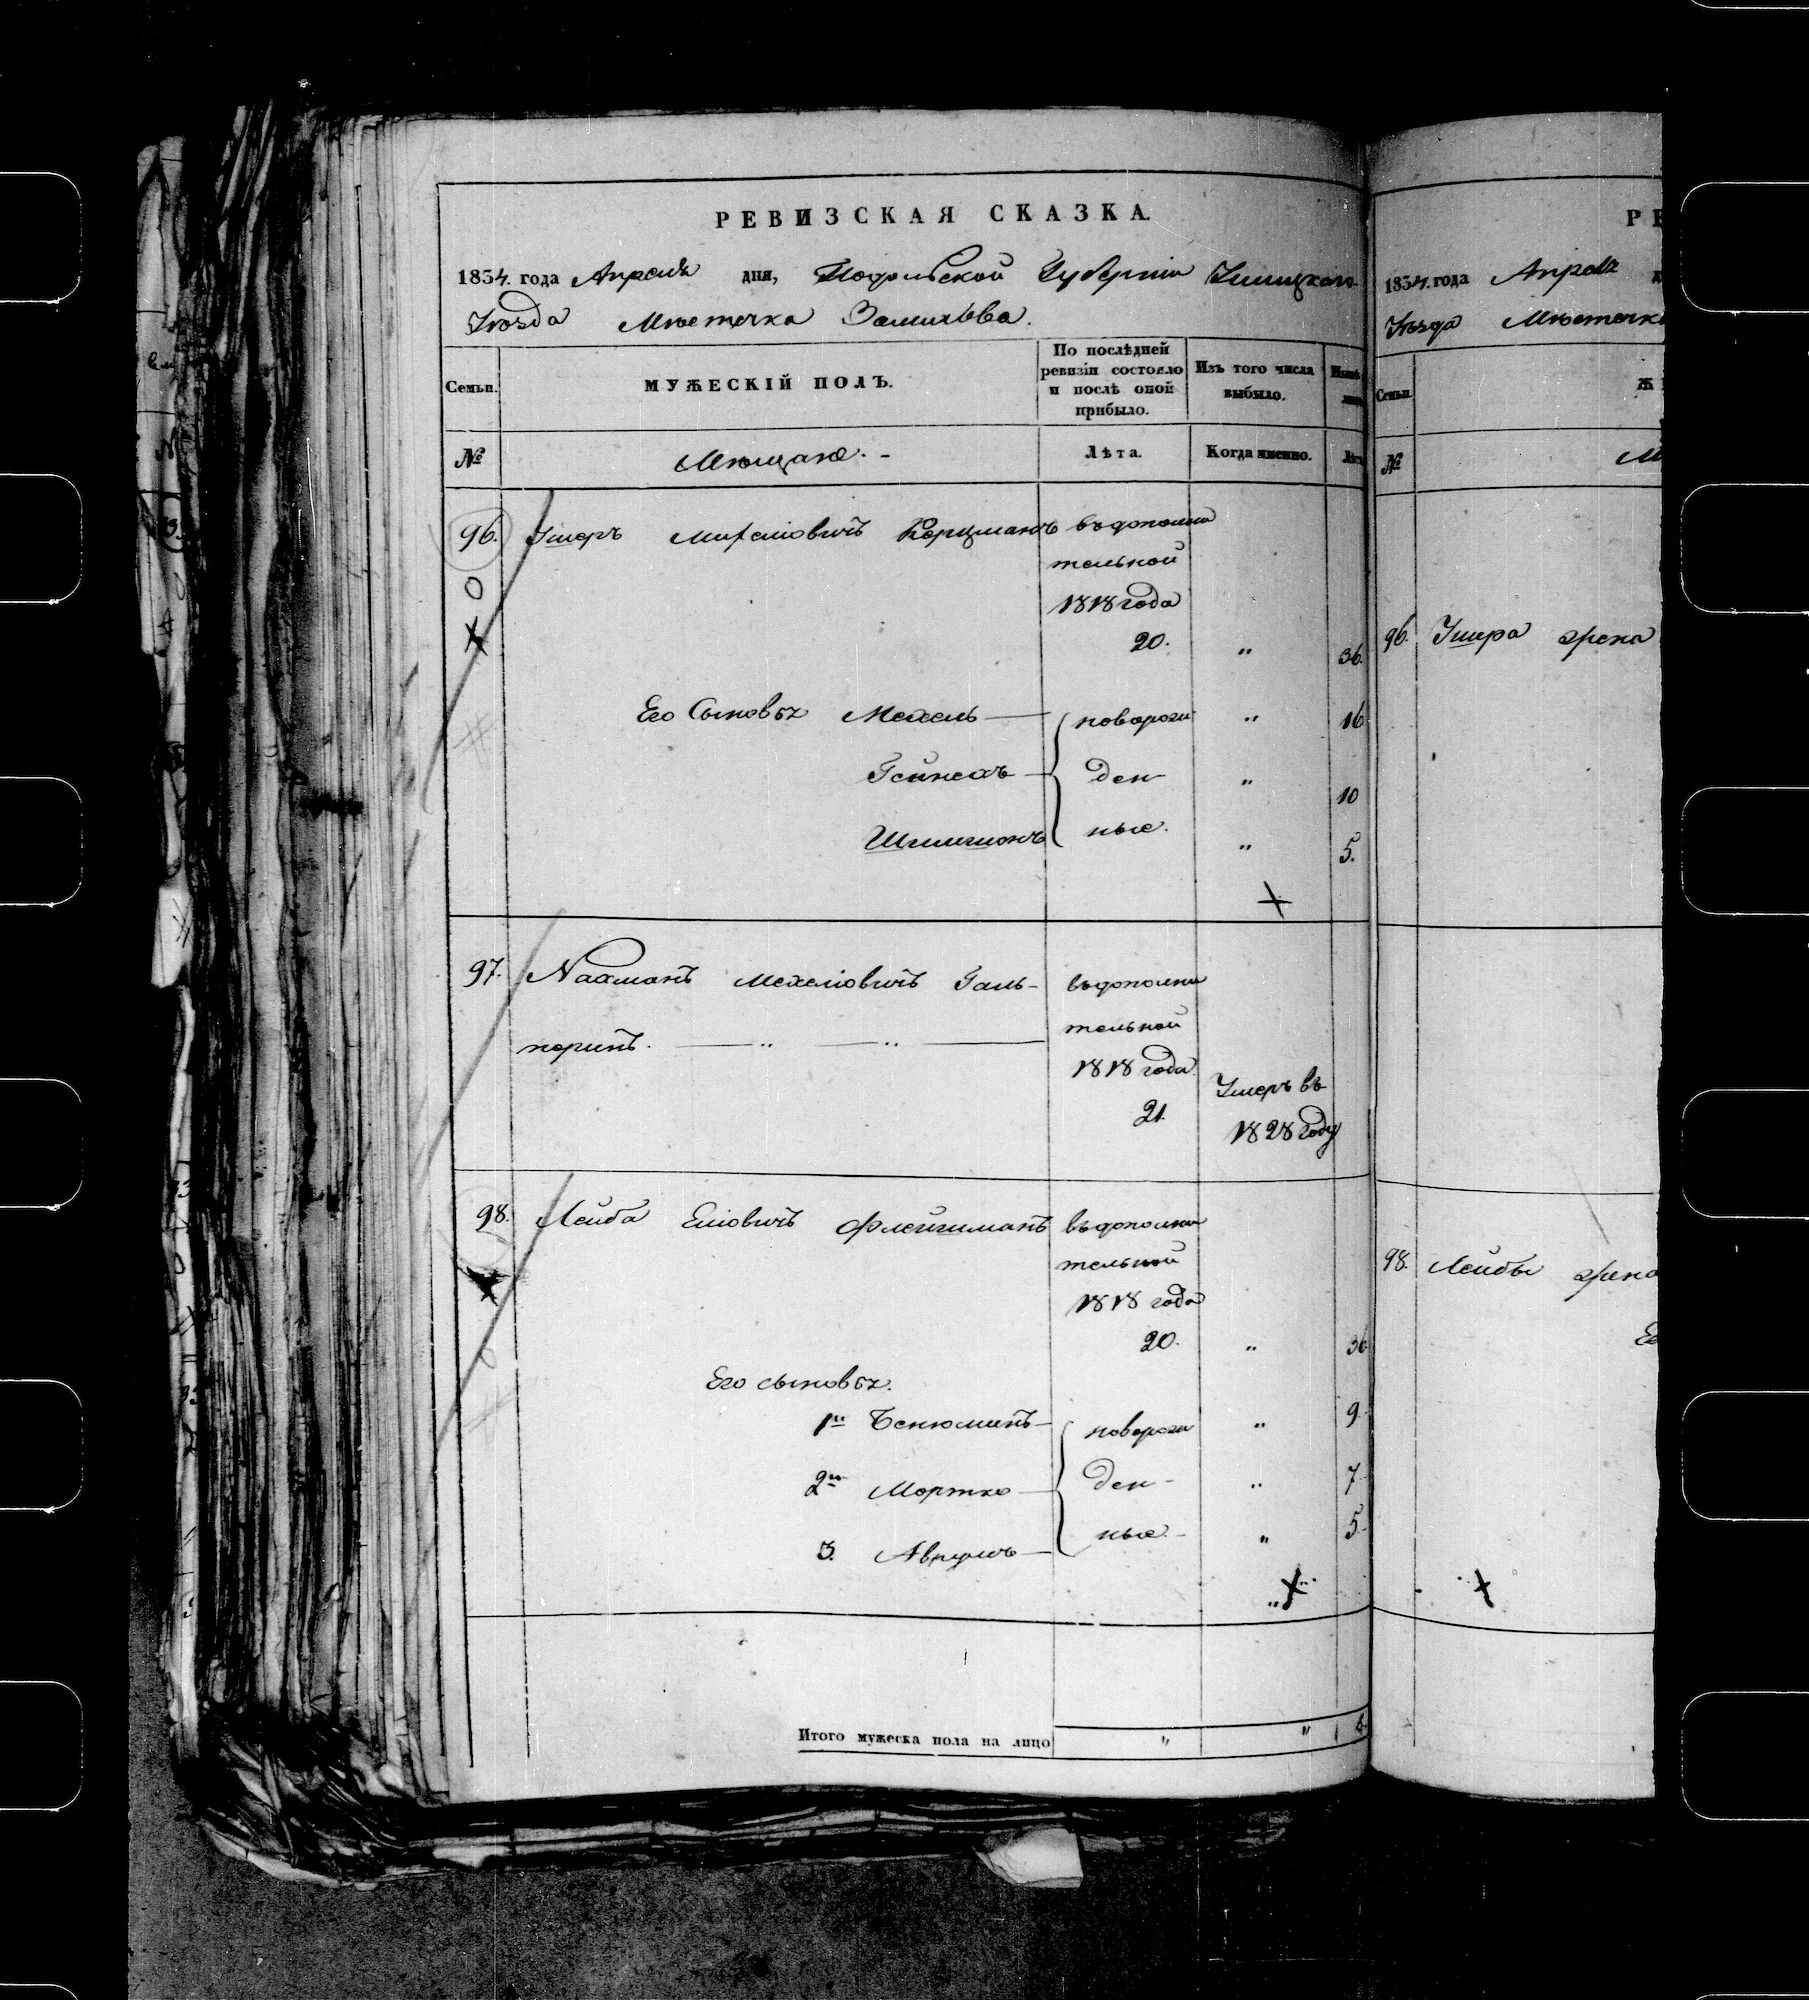 РЕВИЗСКАЯ СКАЗКА.
1834. года Апреля дня, Подольской Губерніи Ушицкого
Уѣзда Мѣстечка Замихова.
Семьи.
МУЖЕСКІЙ ПОЛЪ.
По послѣдней
ревизіи состояло
и послѣ оной
прибыло.
Изъ того числа
выбыло.
№
Мѣщане. -
Лѣта.
Когда именно.
96. Умеръ Керцманъ въ дополни
тельной
1818 года
20. " 36.
Его Сыновья Мехель — новорож " 16
ден- " 10
ные. " 5.
97. Нахманъ Мехеліовичъ Галь- въ дополни
перинъ. — " — " — тельной
1818 года
21.
Умеръ въ
1828 году
98. Лейба Еліовичъ Флейшманъ въ дополни
тельной
1818 года
20. " 36
Его сыновья.
1й Беніоминъ — новорож " 9
2й Мортко — ден- " 7
3. Аврумъ — ные. - " 5
Итого мужеска пола на лицо " "
РЕ
1834. года Апреля
Уѣзда Местечка
Семьи.
№
96. жена
98. Лейбы жена